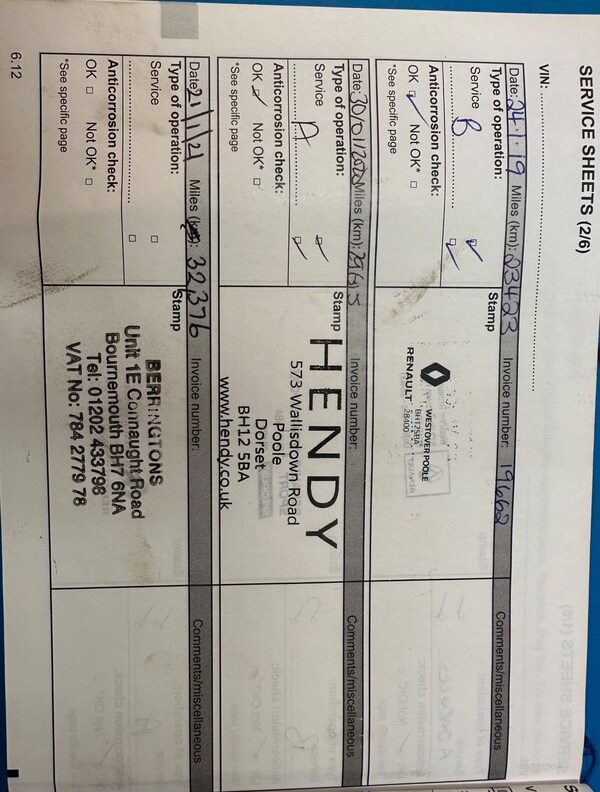 SERVICE SHEETS (2/6)
VIN:
Date: 24.1.19 Miles (km): 23423 Invoice number: 19662 Comments/miscellaneous
Type of operation: Stamp
Service B
OK ☑ Not OK* □
Anticorrosion check:
*See specific page
RENAULT
WESTOVER POOLE
BH12 5BA
28400
Date: 30/01/2020 Miles (km): Invoice number: Comments/miscellaneous
Type of operation: Stamp
Service A
Anticorrosion check:
OK ☑ Not OK* □
*See specific page
HENDY
573 Wallisdown Road
Poole
Dorset
BH12 5BA
www.hendy.co.uk
Date: 21/1/21 Miles (km): 32,376 Invoice number: Comments/miscellaneous
Type of operation: Stamp
Service
Anticorrosion check:
OK □ Not OK* □
*See specific page
BERRINGTONS
Unit 1E Connaught Road
Bournemouth BH7 6NA
Tel: 01202 433798
VAT No: 784 2779 78
6.12